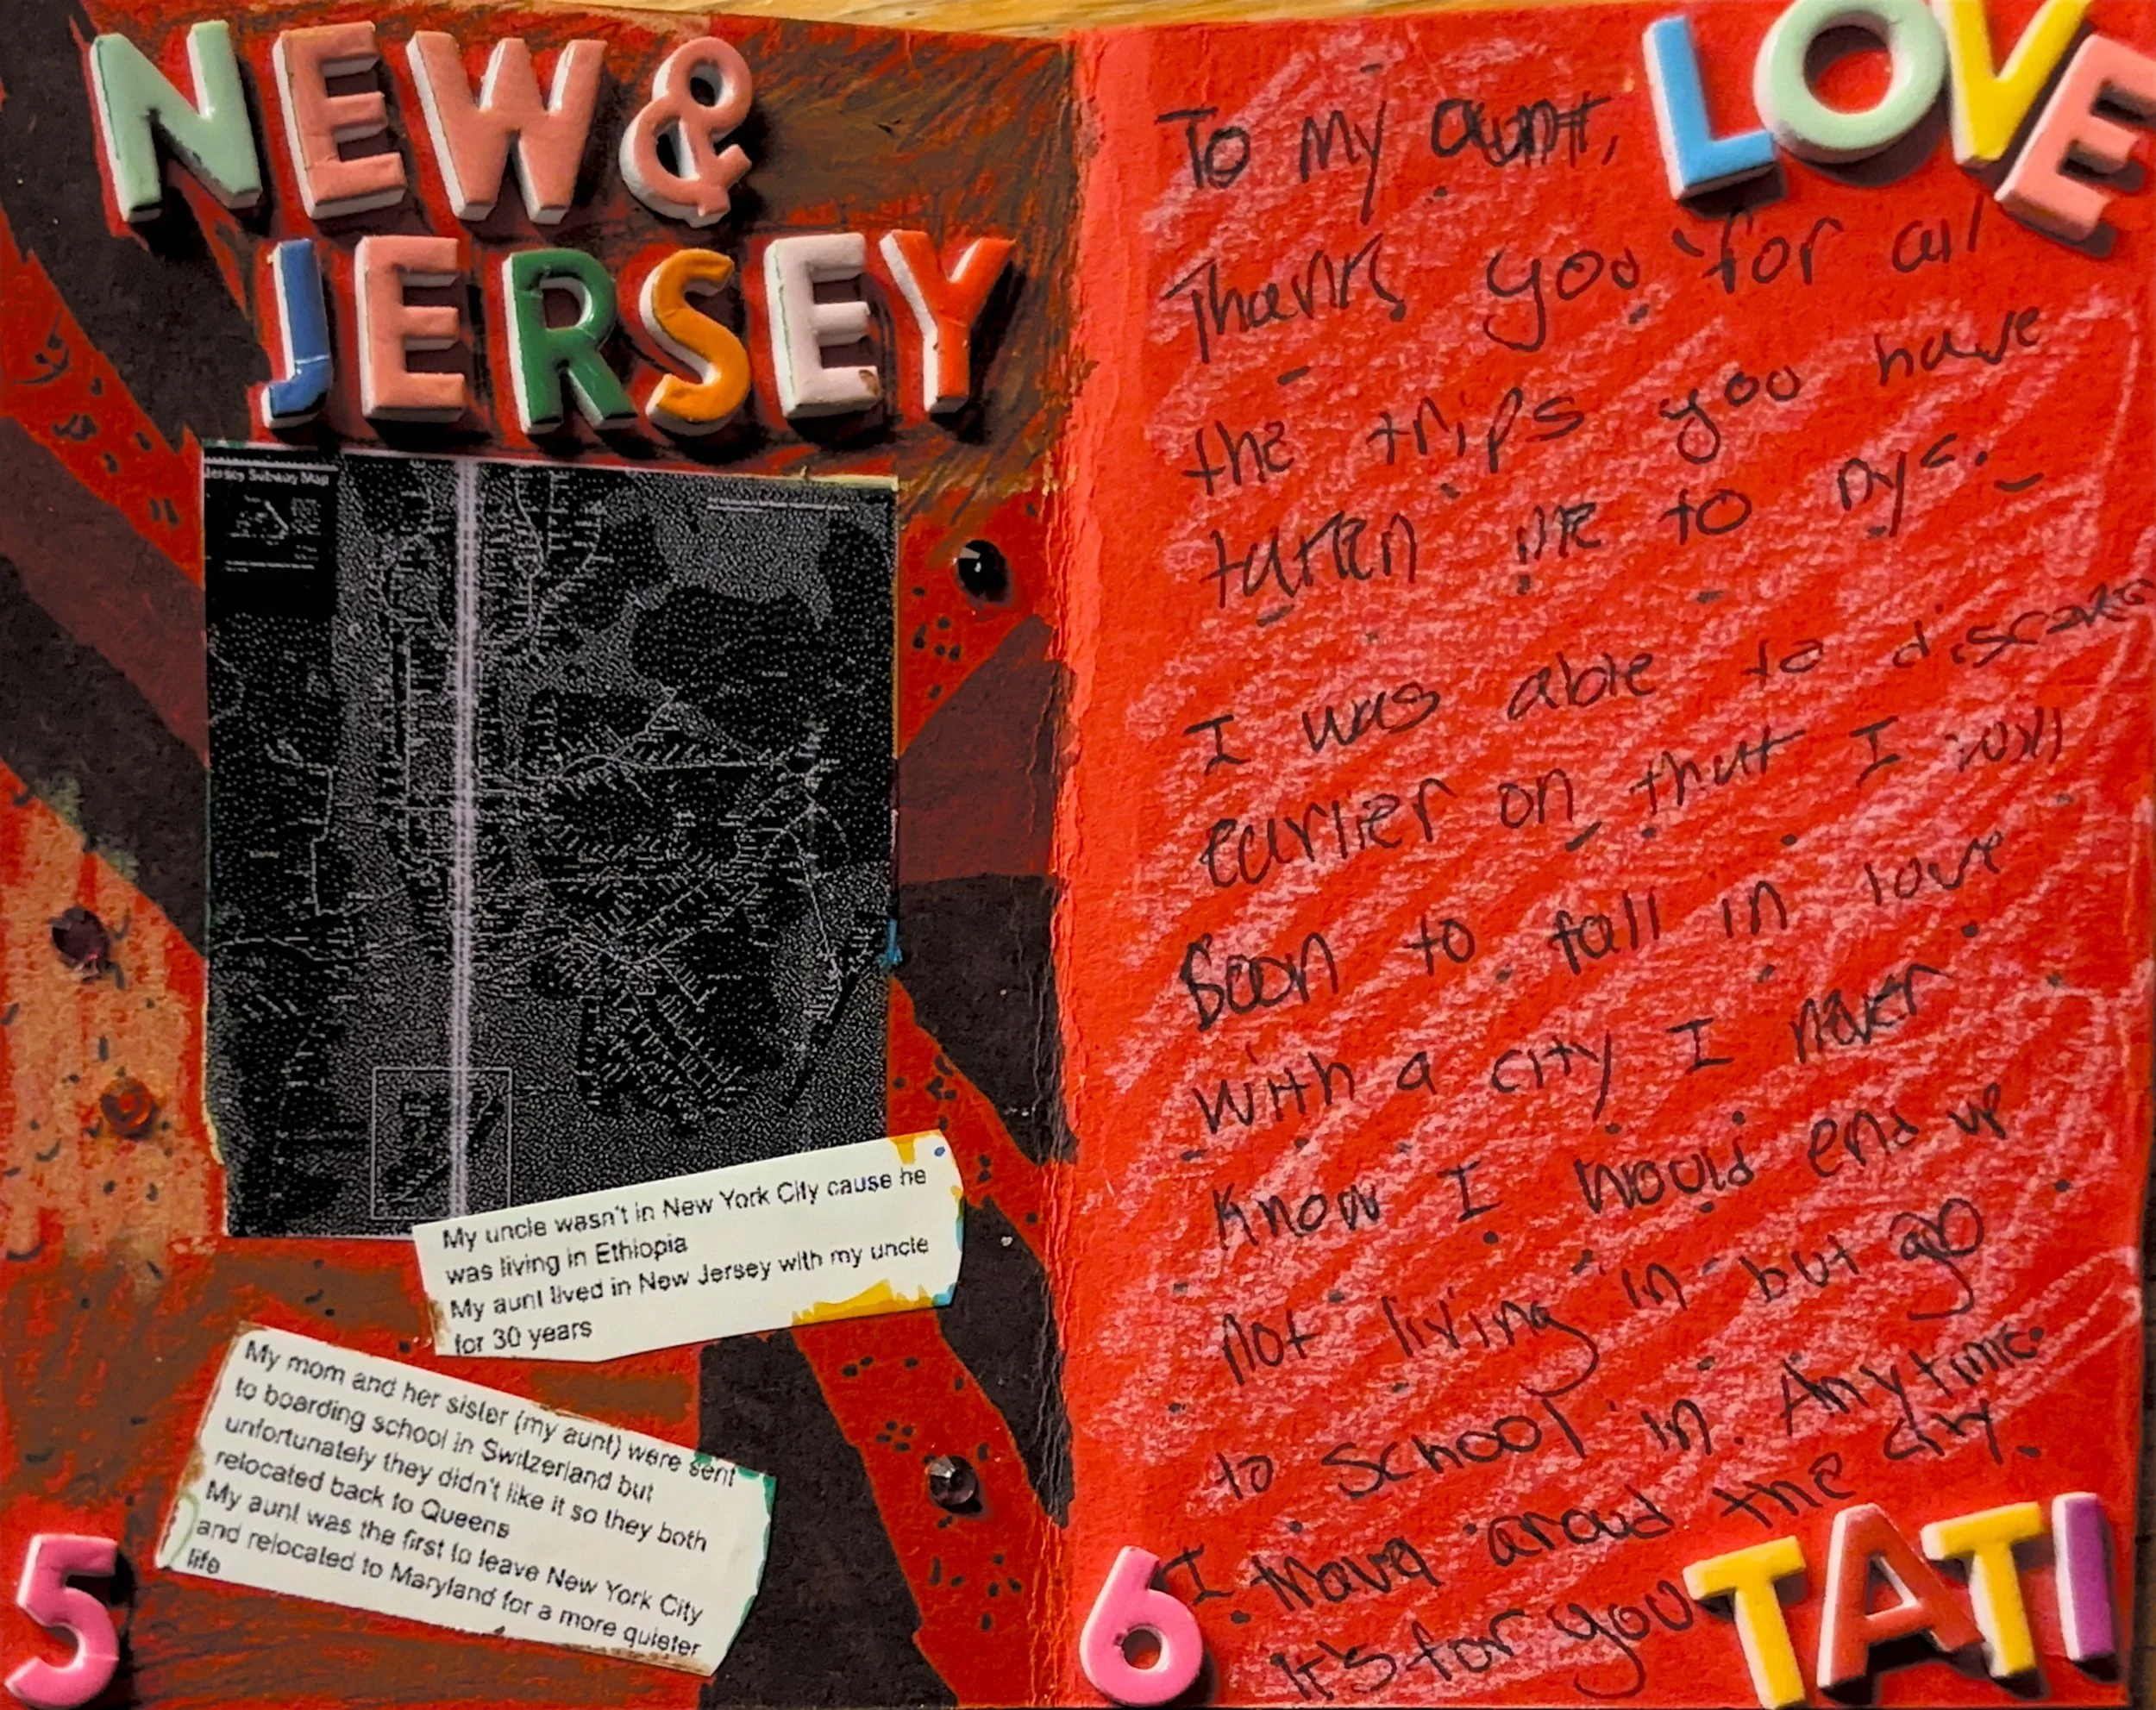 NEW &
JERSEY
Jersey Subway Map
My uncle wasn't in New York City cause he
was living in Ethiopia
My aunt lived in New Jersey with my uncle
for 30 years
My mom and her sister (my aunt) were sent
to boarding school in Switzerland but
unfortunately they didn't like it so they both
relocated back to Queens
My aunt was the first to leave New York City
and relocated to Maryland for a more quieter
life
5
LOVE
To my aunt,
Thank you for all
the trips you have
taken me to nyc.
I was able to
earlier on that I will
Soon to fall in love
with a city I never
know I would end up
not living in but go
to school in. Anytime
I around the city.
It's for you
TATI
6